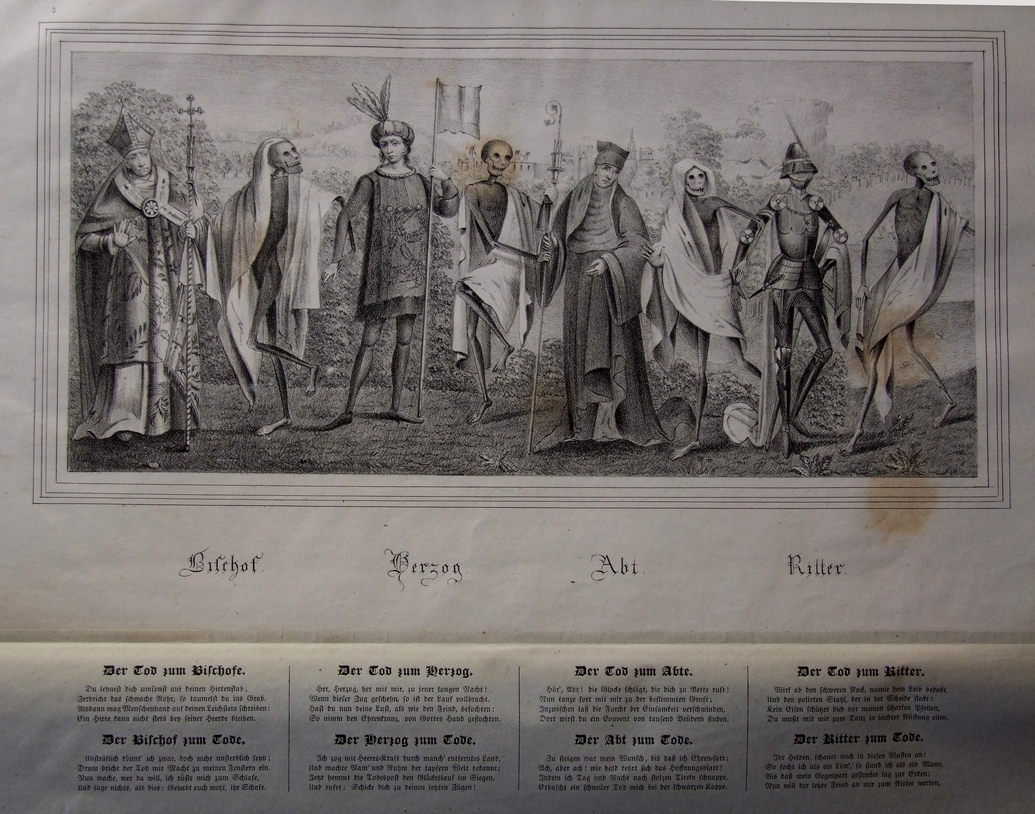 Bischof.
Herzog.
Abt.
Ritter.
Der Tod zum Bischofe.
Du lehnest dich umsonst auf deinen Hirtenstab;
Zerbricht das schwache Rohr, so taumelst du ins Grab.
Alsdann mag Menschenhand auf deinen Leichstein schreiben:
Ein Hirte kann nicht stets bey seiner Heerde bleiben.
Der Bischof zum Tode.
Unsträflich könnt' ich zwar, doch nicht unsterblich seyn;
Drum bricht der Tod mit Macht zu meinen Fenstern ein.
Nun wache, wer da will, ich rüste mich zum Schlafe,
Und sage nichts, als dies: Gehabt euch wohl, ihr Schafe.
Der Tod zum Herzog.
Her, Herzog, her mit mir, zu jener langen Nacht!
Wenn dieser Zug geschehn, so ist der Lauf vollbracht.
Hast du nun deine Lust, als wie den Feind, befochten:
So nimm den Ehrenkranz, von Gottes Hand geflochten.
Der Herzog zum Tode.
Ich zog mit Heeres-Kraft durch manch' entferntes Land,
Und machte Nam' und Ruhm der tapfern Welt bekannt;
Jetzt hemmt die Todespost den Glückslauf im Siegen,
Und rufet: Schicke dich zu deinen letzten Zügen!
Der Tod zum Abte.
Hör', Abt! die Glocke schlägt, die dich zu Bette ruft!
Nun tanze fort mit mir zu der bestimmten Gruft;
Inzwischen laß die Furcht der Einsamkeit verschwinden,
Dort wirst du ein Convent von tausend Brüdern finden.
Der Abt zum Tode.
Zu steigen war mein Wunsch, bis daß ich Ehrensatt;
Ach, aber ach! wie bald kehrt sich das Hoffnungsblatt!
Indem ich Tag und Nacht nach stolzen Titeln schnappe,
Erhascht ein schneller Tod mich bei der schwarzen Kappe.
Der Tod zum Ritter.
Wirf ab den schweren Rock, womit dein Leib bedeckt,
Und den polirten Stahl, der in der Scheide steckt;
Kein Eisen schützet dich vor meinen scharfen Pfeilen,
Du mußt mit mir zum Tanz in leichter Rüstung eilen.
Der Ritter zum Tode.
Ihr Helden, schauet mich in diesen Waffen an!
So focht ich als ein Löw', so stand ich als ein Mann,
Bis daß mein Gegenpart gestrecket lag zur Erden;
Nun will der letzte Feind an mir zum Ritter werden.